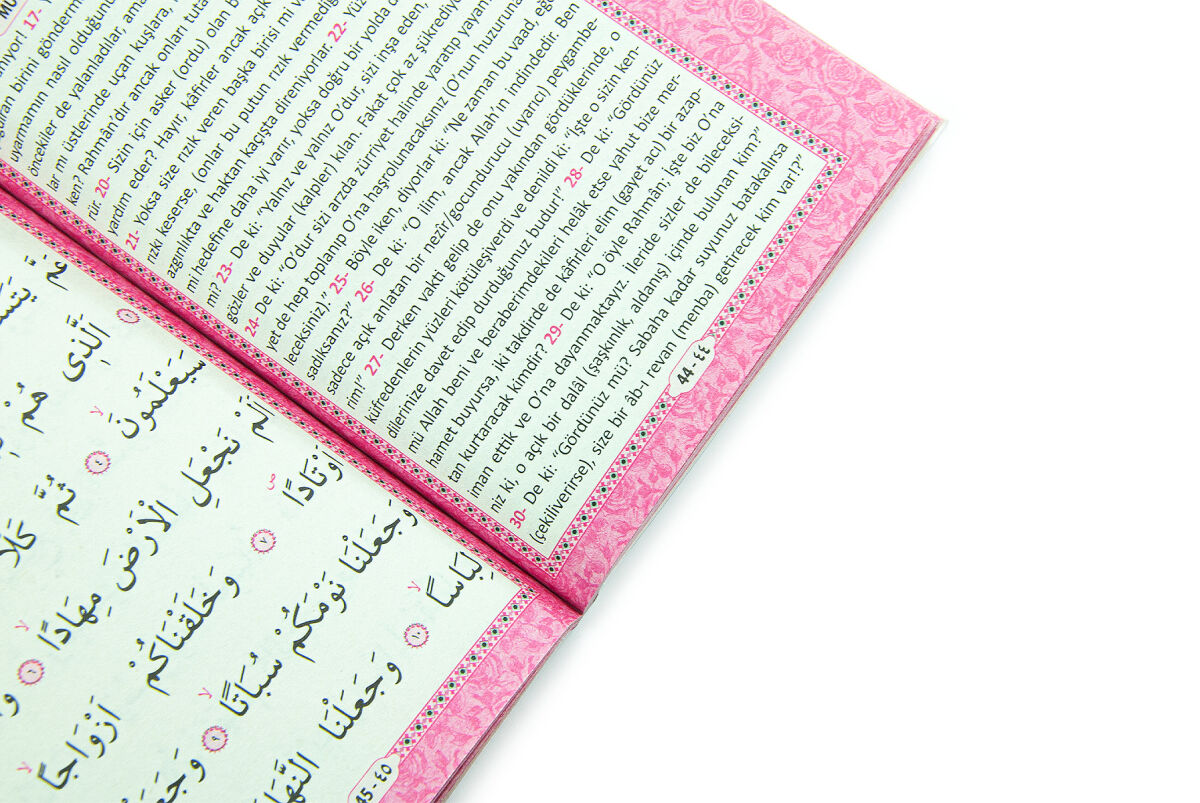 MÜ
nıyor! 17-
uran birini gönderm
uyarmamın nasıl olduğunu
öncekiler de yalanladılar, ama
lar mı üstlerinde uçan kuşlara,
ken? Rahmân'dır ancak onları tuta
rür. 20- Sizin için asker (ordu) olan b
yardım eder? Hayır, kâfirler ancak açık
21- Yoksa size rızık veren başka birisi mi v
rızkı keserse, (onlar bu putun rızık vermediğ
azgınlıkta ve haktan kaçışta direniyorlar. 22- Yüz
mi hedefine daha iyi varır, yoksa doğru bir yolda d
mi? 23- De ki: “Yalnız ve yalnız O'dur, sizi inşa eden,
gözler ve duyular (kalpler) kılan. Fakat çok az şükrediyo
24- De ki: “O'dur sizi arzda zürriyet halinde yaratıp yayan
yet de hep toplanıp O'na haşrolunacaksınız (O'nun huzuruna
leceksiniz).” 25- Böyle iken, diyorlar ki: “Ne zaman bu vaad, eğe
sadıksanız?” 26- De ki: “O ilim, ancak Allah'ın indindedir. Ben
sadece açık anlatan bir nezîr/gocundurucu (uyarıcı) peygambe-
rim!” 27- Derken vakti gelip de onu yakından gördüklerinde, o
küfredenlerin yüzleri kötüleşiverdi ve denildi ki: “İşte o sizin ken-
dilerinize davet edip durduğunuz budur!” 28- De ki: “Gördünüz
mü Allah beni ve beraberimdekileri helâk etse yahut bize mer-
hamet buyursa, iki takdirde de kâfirleri elim (gayet acı) bir azap-
tan kurtaracak kimdir? 29- De ki: “O öyle Rahmân; İşte biz O'na
iman ettik ve O'na dayanmaktayız. İleride sizler de bileceksi-
niz ki, o açık bir dalâl (şaşkınlık, aldanış) içinde bulunan kim?”
30- De ki: “Gördünüz mü? Sabaha kadar suyunuz batakalırsa
(çekiliverirse), size bir âb-ı revan (menba) getirecek kim var!?”
44 - ٤٤
عَمَّ يَتَسَ
١ اَلَّذٖى هُمْ
سَيَعْلَمُونَ ٤ ثُمَّ كَلَّا
اَلَمْ نَجْعَلِ الْاَرْضَ مِهَادًا ٦
اَوْتَادًا ٧ وَخَلَقْنَاكُمْ اَزْوَاجًا
وَجَعَلْنَا نَوْمَكُمْ سُبَاتًا ٩ وَجَعَ
لِبَاسًا ١٠ وَجَعَلْنَا النَّهَا
45 - ٤٥